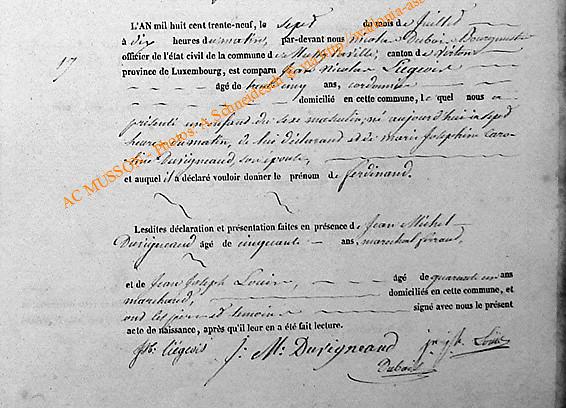 L'AN mil huit cent trente-neuf, le sept du mois de Juillet
à dix heures du matin, par-devant nous Nicolas Dubois Bourgmestre
officier de l'état civil de la commune de canton de Virton
17
province de Luxembourg, est comparu Jean Nicolas Liégeois
âgé de ans, cordonnier
domicilié en cette commune, lequel nous a
présenté un enfant du sexe masculin, né aujourd'hui à sept
heures du matin, de lui déclarant et de Marie Josephine Caro-
line Duvigneaud, son épouse,
et auquel il a déclaré vouloir donner le prénom de Ferdinand.
Lesdites déclaration et présentation faites en présence de Jean Michel
Duvigneaud âgé de cinquante ans, maréchal ferrant,
et de Jean Joseph âgé de quarante un ans
marchand, domiciliés en cette commune, et
ont les père et témoins signé avec nous le présent
acte de naissance, après qu'il leur en a été fait lecture.
Liégeois J: M: Duvigneaud
Dubois
AC MUSSON - Photos: A Schneidesch - via http://